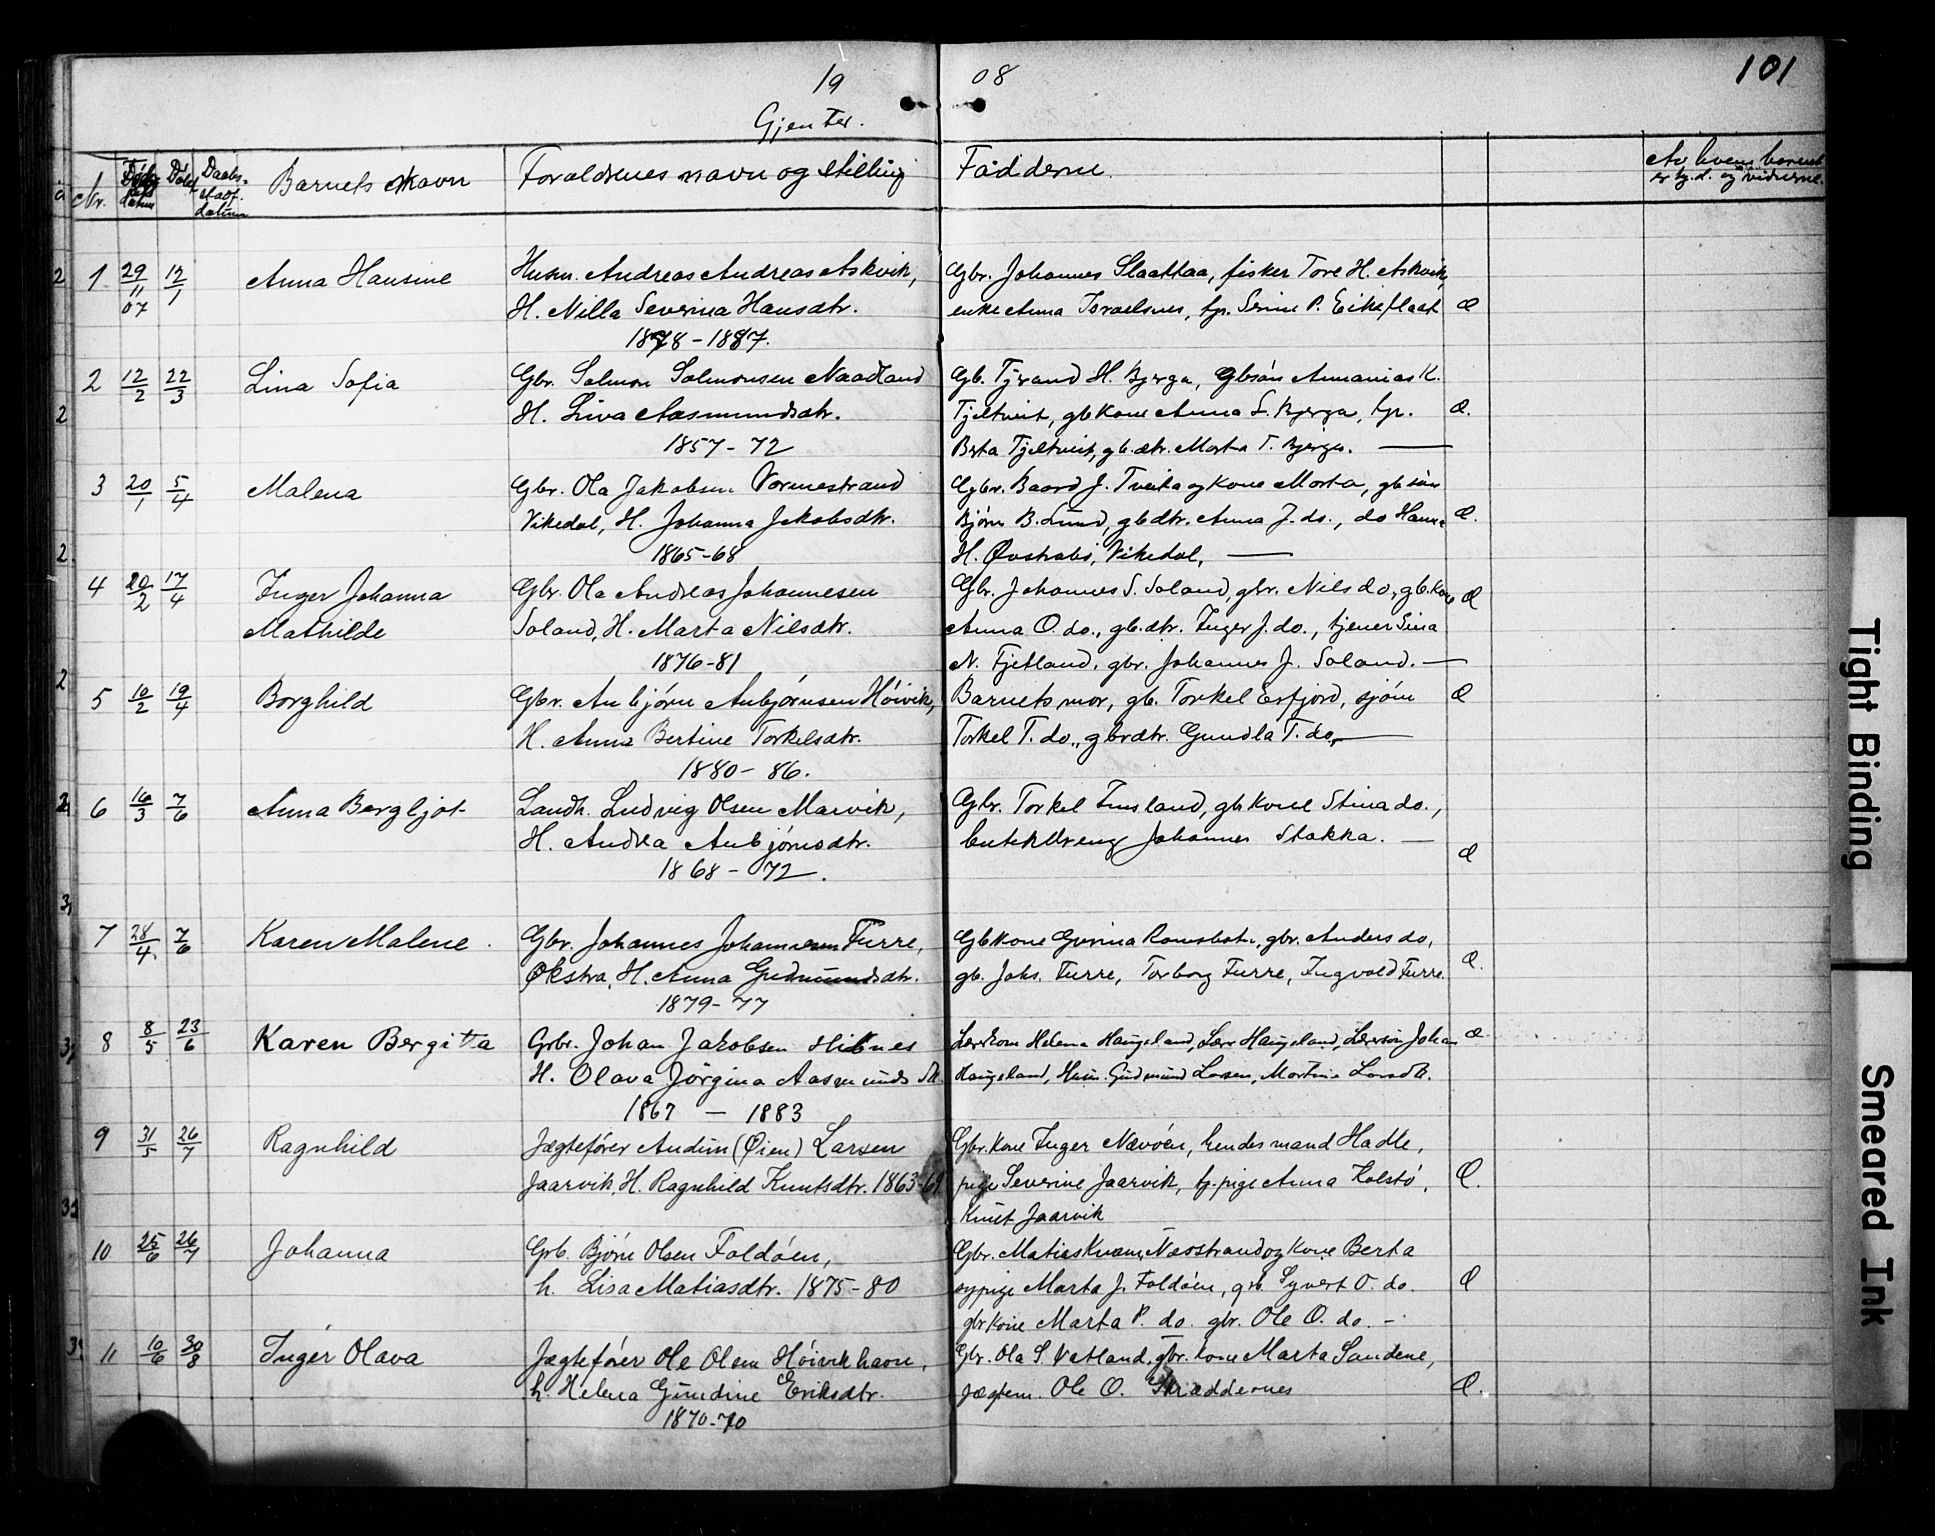 19 08
101
Gjenter.
Nr. Døbt Daabs- Barnets Navn Forældrenes navn og stilling Fadderne. Av hvem barnet
er hj.d. og vidnerne.
datum
1 29/11 07 12/1 Anna Hansine Husm. Andreas Andreas Askvik, Gbr. Johannes Slaattaa, fisker Tore H. Askvik,
H. Nilla Severina Hansdtr. enke Anna Israelsnes, tp. Serine P. Eikeflaat Æ
1878-1887.
2 12/2 22/3 Lina Sofia Gbr. Salmon Salmonsen Naadland Gb. Tjerand H. Bjerga, Gbsøn Annanias K.
H. Liva Aasmundsdtr. Tjeltveit, gbkone Anna S. Bjerga, tp. Æ.
1857-72 Berta Tjeltveit, gb.dtr. Marta T. Bjerga.
3 20/1 5/4 Malena Gbr. Ola Jakobsen Vormestrand Gbr. Baard J. Tveita og kone Marta, gbsøn
Vikedal, H. Johanna Jakobsdtr. Bjørn B. Lund, gbdtr. Anna J. do., do Hanna Æ.
1865-68 H. Øvstabø, Vikedal,
4 20/2 17/4 Inger Johanna Gbr. Ola Andreas Johannesen Gbr. Johannes S. Soland, gbr. Nils do, gb.kone Æ
Mathilde Soland, H. Marta Nilsdtr. Anna O. do., gb.dtr. Inger J. do., tjener Sina
1876-81 N. Fjetland, gbr. Johannes J. Soland.
5 10/2 19/4 Borghild Gbr. Anbjørn Anbjørnsen Høivik, Barnets mor, gb. Torkel Erfjord, sjøm Æ
H. Anna Bertine Torkelsdtr. Torkel T. do., gbrdtr. Gundla T. do,
1880-86.
6 16/3 7/6 Anna Bergljot Landh. Ludvig Olsen Marvik, Gbr. Torkel Finsland, gbkone Stina do.,
H. Andrea Anbjørnsdtr. butikdreng Johannes Stakka. Æ
1868-72.
7 28/4. 7/6 Karen Malene. Gbr. Johannes Johannesen Furre, Gbkone Gurina Ramsbotn, gbr. Anders do,
Økstra, H. Anna Gudmundsdtr. gb. Johs. Furre, Torborg Furre, Ingvald Furre. Æ.
1879-77
8 8/5 23/6 Karen Bergitta Gbr. Johan Jakobsen Hibnes Lærerkone Helena Haugeland, Lærer Haugeland, Lærersøn Johan Æ
H. Olava Jörgina Aasmundsdtr. Haugeland, Husm. Gudmund Larsen, Martine Larsdtr.
1867 - 1883
9 31/5 26/7 Ragnhild Jægtefører Audun (Øien) Larsen Gbr.kone Inger Nævøen, hendes mand Hadle,
Jaarvik, H. Ragnhild Knutsdtr. 1863-69. pige Severine Jaarvik, tj.pige Anna Kolstø, Æ.
Knut Jaarvik
10 25/6 26/7 Johanna Grb. Bjørn Olsen Foldøen, Gbr. Matias Kvam, Næsstrand og kone Berta
h. Lisa Matiasdtr. 1875-80 sypige Marta J. Foldøen, grb. Syvert O. do. Æ
gbrkone Marta P. do. gbr. Ole O. do. -
11 10/6 30/8 Inger Olava Jægtefører Ole Olsen Høivik havn, Gbr. Ola S. Vatland, gbr. kone Marta Sandene,
h. Helena Gundine Eriksdtr. Jægtem. Ole O. Skræddernes Æ.
1870-70
Tight Binding
Smeared Ink